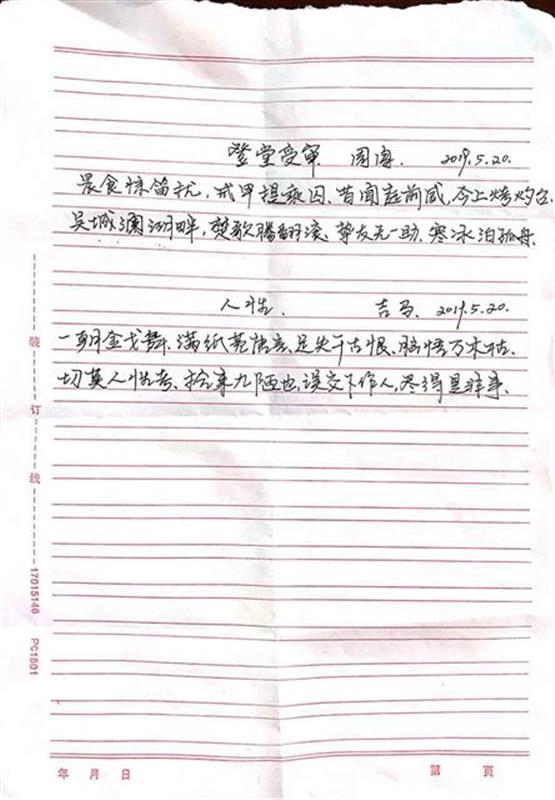 登堂受审 周海. 2019.5.20.
晨食惊笛扰,戒甲提乘囚.昔闻庭前威,今上烤灼台.
吴城澜湖畔,楚歌腾翻滚.挚友无一助.寒冰泊孤舟.
人性. 吉马. 2019.5.20.
一朝金戈舞.满纸荒唐言.足失千古恨.脑悟万木枯.
切莫人性考.拾来九陋也.误交下作人,尽得是非事.
装订线
17015146 PC1801
年 月 日 第 页